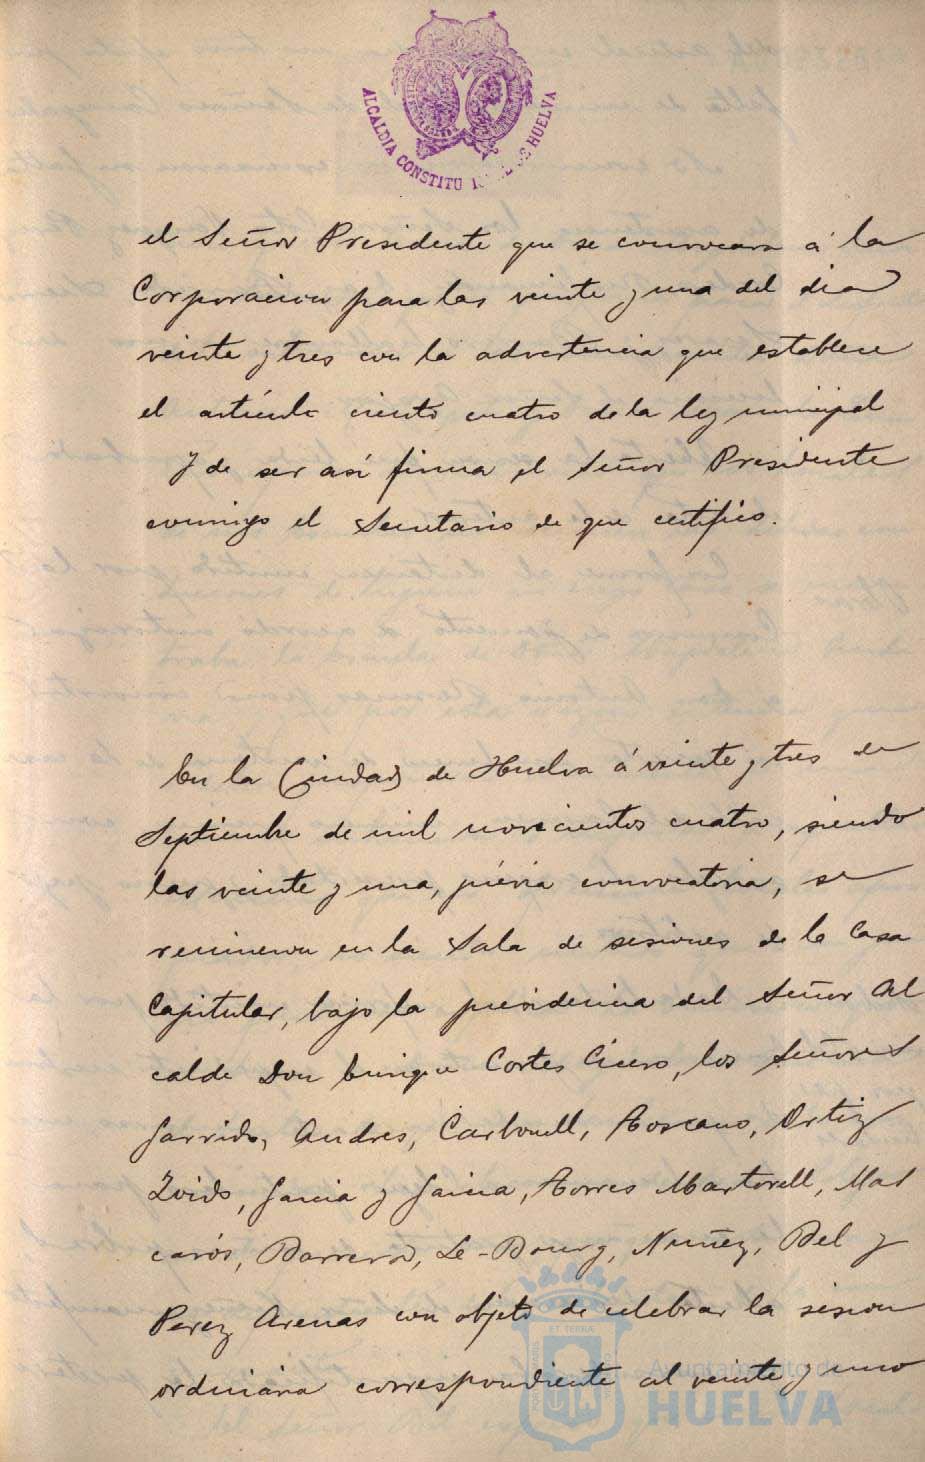 ALCALDIA CONSTITU L DE HUELVA
el Señor Presidente que se convocara á la
Corporacion para las veinte y una del dia
veinte y tres con la advertencia que establece
el artículo ciento cuatro de la ley municipal
y de ser así firma el Señor Presidente
conmigo el Secretario de que certifico.
En la Ciudad de Huelva á veinte y tres de
Septiembre de mil novecientos cuatro, siendo
las veinte y una, prévia convocatoria, se
reunieron en la Sala de sesiones de la Casa
Capitular, bajo la presidencia del Señor Al
calde Don Enrique Cortes Cícero, los Señores
Garrido, Andres, Carbonell, Toscano, Ortiz
Zoido, Garcia y Garcia, Torres Martorell, Mas
carós, Barrera, Le-Bourg, Nuñez, Bel y
Perez Arenas con objeto de celebrar la sesion
ordinaria correspondiente al veinte y uno
Ayuntamiento de
HUELVA